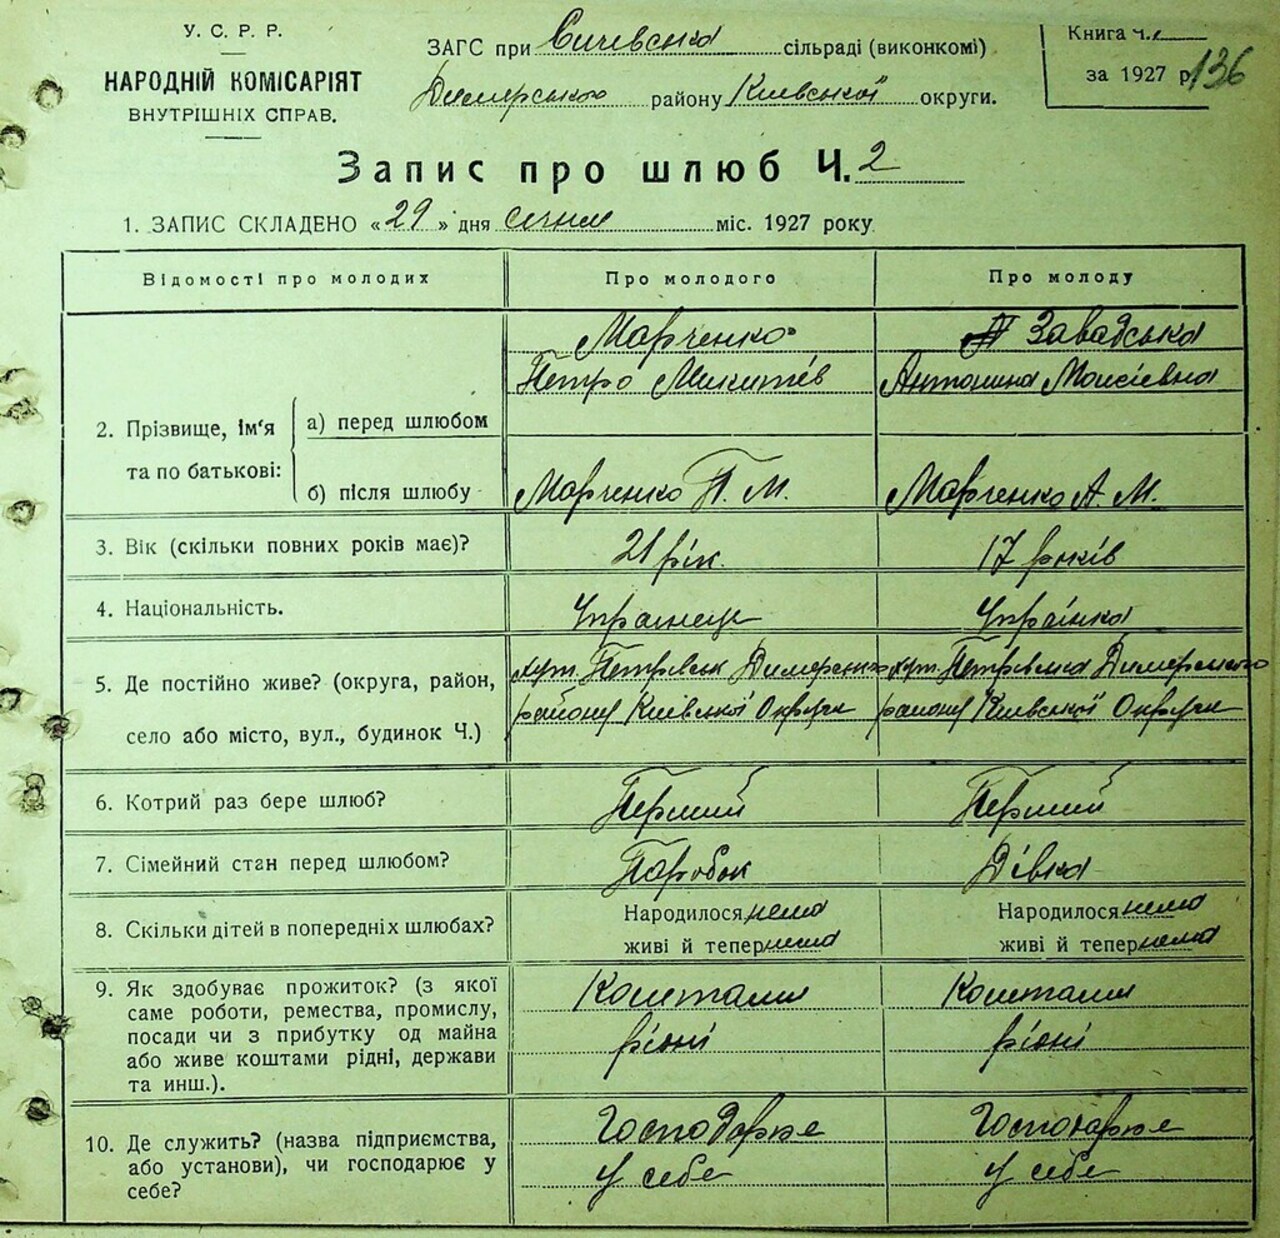 У. С. Р. Р.
НАРОДНІЙ КОМІСАРІЯТ
ВНУТРІШНІХ СПРАВ.
ЗАГС при Сичевська сільраді (виконкомі)
Димерського району Київської округи.
Книга ч.
за 1927 р.
136
Запис про шлюб Ч. 2
1. ЗАПИС СКЛАДЕНО «29» дня січня міс. 1927 року
Відомості про молодих
Про молодого
Про молоду
2. Прізвище, ім'я та по батькові:
а) перед шлюбом
Марченко
Петро Микитів
Завадська
Антонина Моисіевна
б) після шлюбу
Марченко П. М.
Марченко А. М.
3. Вік (скільки повних років має)?
21 рік.
17 років
4. Національність.
Українець
Українка
5. Де постійно живе? (округа, район,
село або місто, вул., будинок Ч.)
хут. Петрівськ Димерського
району Київської Округи
хут. Петрівська Димерського
району Київської Округи
6. Котрий раз бере шлюб?
Перший
Перший
7. Сімейний стан перед шлюбом?
Паробок
Дівка
8. Скільки дітей в попередніх шлюбах?
Народилося нема
живі й тепер нема
Народилося нема
живі й тепер нема
9. Як здобуває прожиток? (з якої
саме роботи, ремества, промислу,
посади чи з прибутку од майна
або живе коштами рідні, держави
та инш.).
Коштами
рідні
Коштами
рідні
10. Де служить? (назва підприємства,
або установи), чи господарює у
себе?
Господарює
у себе
Господарює
у себе